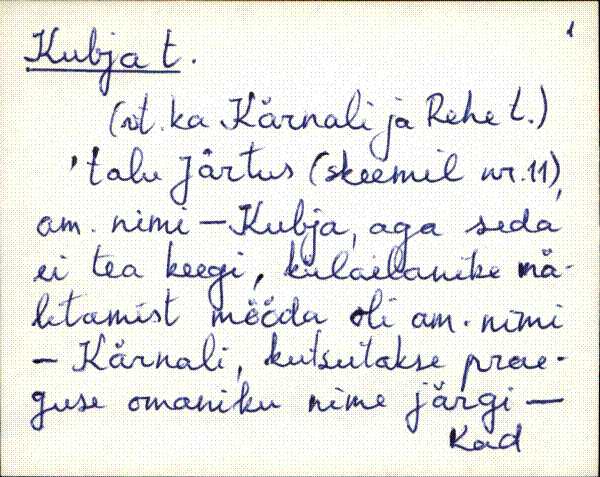 1
Kubja t.
(vt. ka Kärnali ja Rehe t.)
'talu Järtus (skeemil nr. 11),
am. nimi – Kubja, aga seda
ei tea keegi, külaelanike mä-
letamist mööda oli am. nimi
– Kärnali, kutsutakse prae-
guse omaniku nime järgi –
Kad